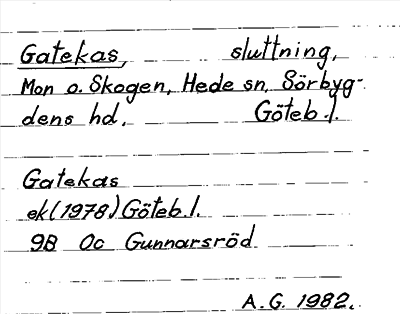 Gatekas, sluttning,
Mon o. Skogen, Hede sn, Sörbyg-
dens hd. Göteb. l.
Gatekas
ek (1978) Göteb. l.
9B 0c Gunnarsröd
A.G. 1982.